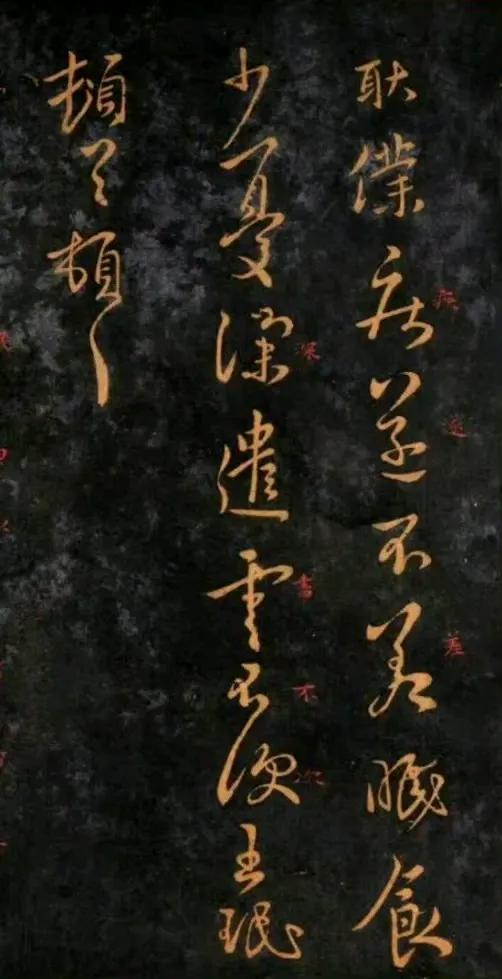 耿僕疾遂不差眠食
疾遂差
少憂深遣書不次王珉
深書不次
頓首頓首